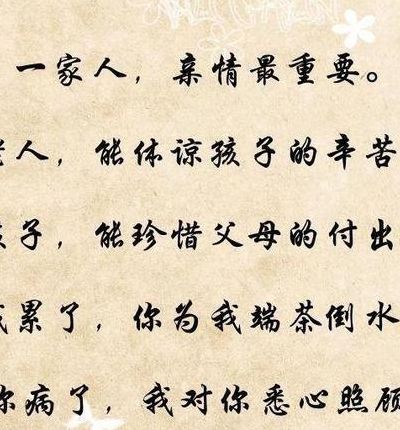 一家人，亲情最重要。
老人，能体谅孩子的辛苦
孩子，能珍惜父母的付出
我累了，你为我端茶倒水
你病了，我对你悉心照顾